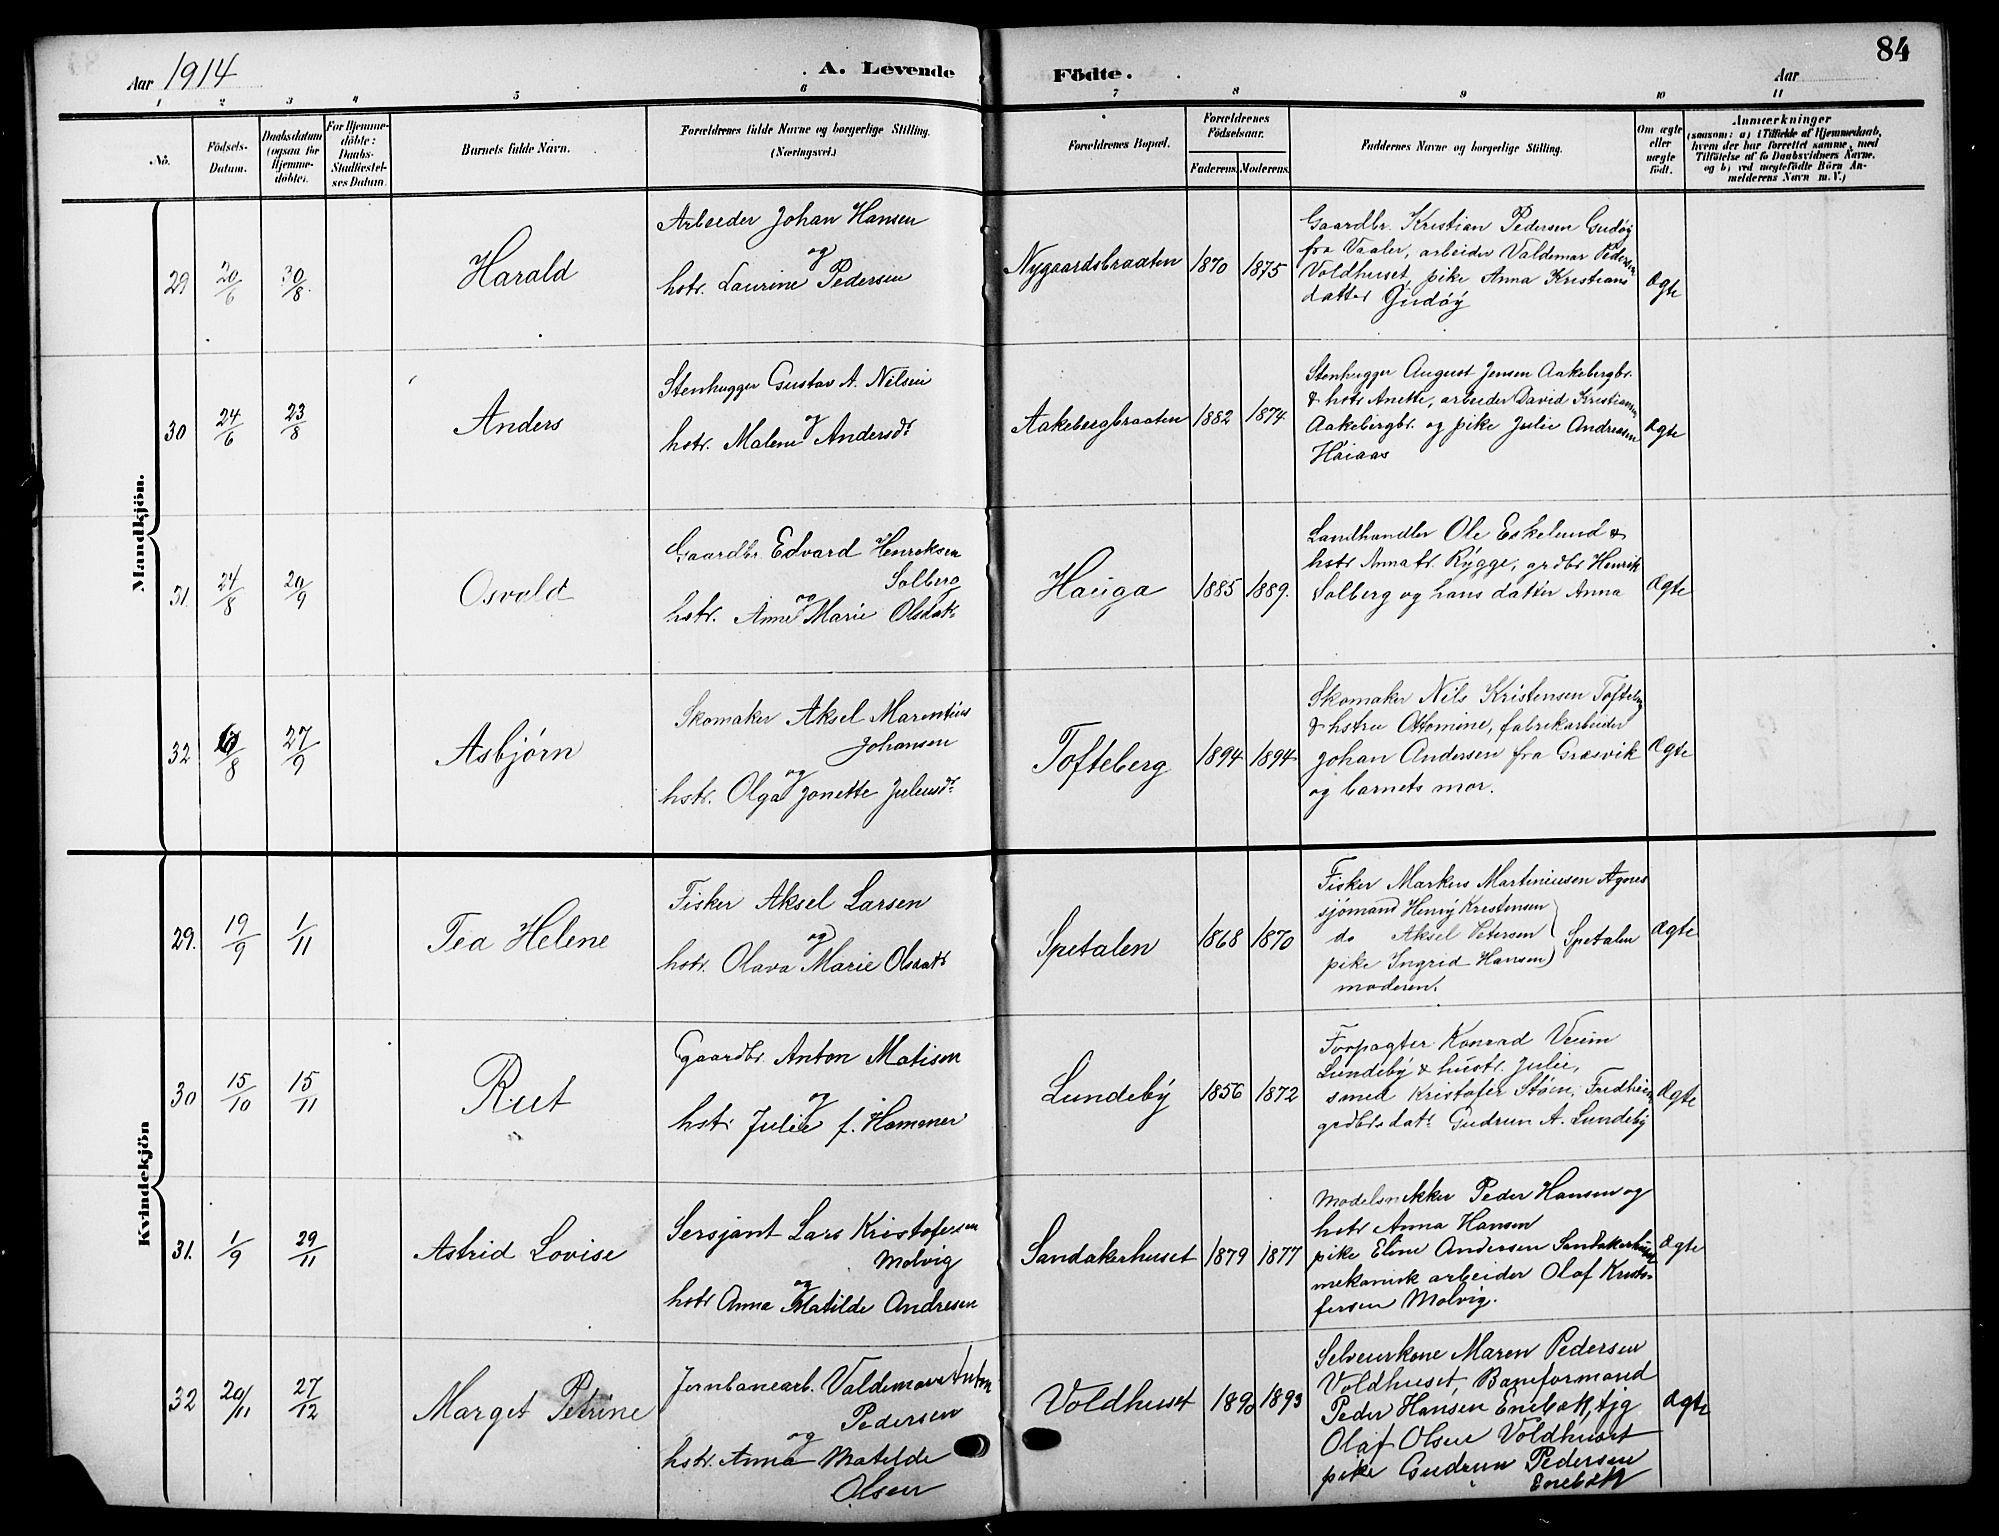 84
Aar 1914
A. Levende
Födte.
Aar
1 2 3 4 5 6 7 8 9 10 11
No.
Födsels-
Datum.
Daabsdatum
(ogsaa for
Hjemme-
döbte).
For Hjemme-
döbte:
Daabs-
Stadfæstel-
ses Datum.
Barnets fulde Navn.
Forældrenes fulde Navne og borgerlige Stilling.
(Næringsvei.)
Forældrenes Bopæl.
Forældrenes
Födselsaar.
Faderens. Moderens.
Faddernes Navne og borgerlige Stilling.
Om ægte
eller
uægte
födt.
Anmærkninger
(saasom: a) i Tilfælde af Hjemmedaab,
hvem der har forrettet samme, med
Tilföielse af to Daabsvidners Navne.
og b) ved uægtefödte Börn An-
melderens Navn m. V.)
Mandkjön.
29
20/6
30/8
Harald
Arbeider Johan Hansen
og
hstr. Laurine Pedersen
Nygaardsbraaten
1870
1875
Gaardbr. Kristian Pedersen Gudöy
fra Vaaler, arbeider Valdemar Pedersen
Voldhuset, pike Anna Kristians
datter Gudöy
Ægte
30
24/6
23/8
Anders
Stenhugger Gustav A. Nilsen
og
hstr. Malene Andersdr
Aakebergbraaten
1882
1874
Stenhugger August Jensen Aakebergbr.
& hstr Anette, arbeider David Kristiansen
Aakebergbr. og pike Julie Andreasen
Höiaas
Ægte
31
24/8
20/9
Osvald
Gaardbr Edvard Henriksen
Solberg
og
hstr. Anne Marie Olsdatr
Hauga
1885
1889.
Landhandler Ole Eskelund &
hstr Anna fr. Rygge, grdbr Henrik
Solberg og hans datter Anna
Ægte
32
27/9
Asbjørn
Skomaker Aksel Marentius
Johansen
og
hstr. Olga Jonette Juliusdr
Tofteberg
1894
1894
Skomaker Nils Kristensen Tofteberg
& hstru Ottomine, fabrikarbeider
Johan Andersen fra Græsvik
og barnets mor.
Ægte
Kvindekjön
29.
19/9
1/11
Tea Helene
Fisker Aksel Larsen
og
hstr. Olava Marie Olsdatr
Spetalen
1868
1870
Fisker Markus Martiniusen Agnes
sjömand Henry Kristensen
do Aksel Petersen
pike Ingrid Hansen) Spetalen
moderen.
Ægte
30
15/10
15/11
Rut
Gaardbr. Anton Matisen
og
hstr Julie f. Hammer
Lundeby
1856
1872
Forpagter Konrad Veum
Lundeby & hustr. Julie,
smed Kristofer Støen, Fredheim
grdbrs datr Gudrun A. Lundeby
Ægte
31.
1/9
29/11
Astrid Lovise
Sersjant Lars Kristofersen
Molvig
og
hstr Anna Matilde Andresen
Sandakerhuset
1879
1877
Modelsnekker Peder Hansen og
hstr Anna Hansen
pike Eline Andersen Sandakerhuset
mekanisk arbeider Olaf Kristo-
fersen Molvig.
Ægte
32
20/11
27/12
Marget Petrine
Jernbanearb. Valdemar Anton
Pedersen
og
hstr. Anna Matilde
Olsen
Voldhuset
1890
1893
Selveierkone Maren Pedersen
Voldhuset, Baneformand
Peder Hansen Enebæk, tjg
Olaf Olsen Voldhuset
pike Gudrun Pedersen
Enebæk
Ægte